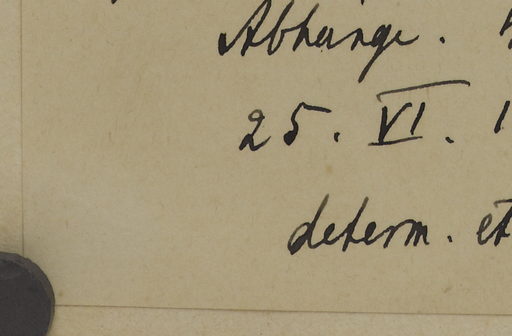 Abhänge.
25. VI. 1
determ. et